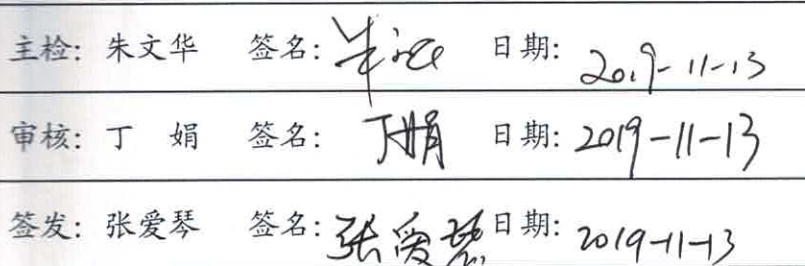 主检: 朱文华 签名: 朱文华 日期: 2019-11-13
审核: 丁 娟 签名: 丁娟 日期: 2019-11-13
签发: 张爱琴 签名: 张爱琴 日期: 2019-11-13